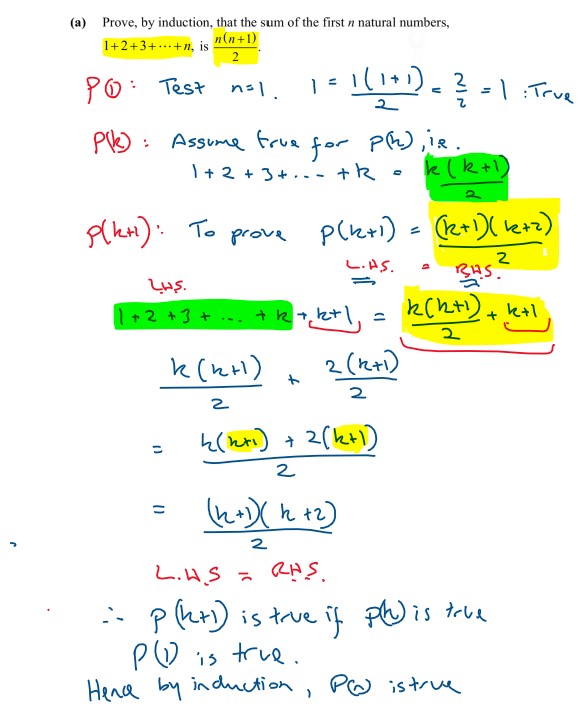 (a) Prove, by induction, that the sum of the first n natural numbers,
1+2+3+⋯+n, is n(n+1)/2.
P(1): Test n=1. 1 = 1(1+1)/2 = 2/2 = 1 :True
P(k): Assume true for P(k), ie.
1+2+3+... +k = k(k+1)/2
P(k+1): To prove P(k+1) = (k+1)(k+2)/2
L.HS. = RHS.
LHS.
1+2+3+ ... +k+k+1 = k(k+1)/2 + k+1
k(k+1)/2 + 2(k+1)/2
= k(k+1) + 2(k+1)/2
= (k+1)(k+2)/2
L.H.S = R.H.S.
∴ P(k+1) is true if P(k) is true
P(1) is true.
Hence by induction, P(n) is true